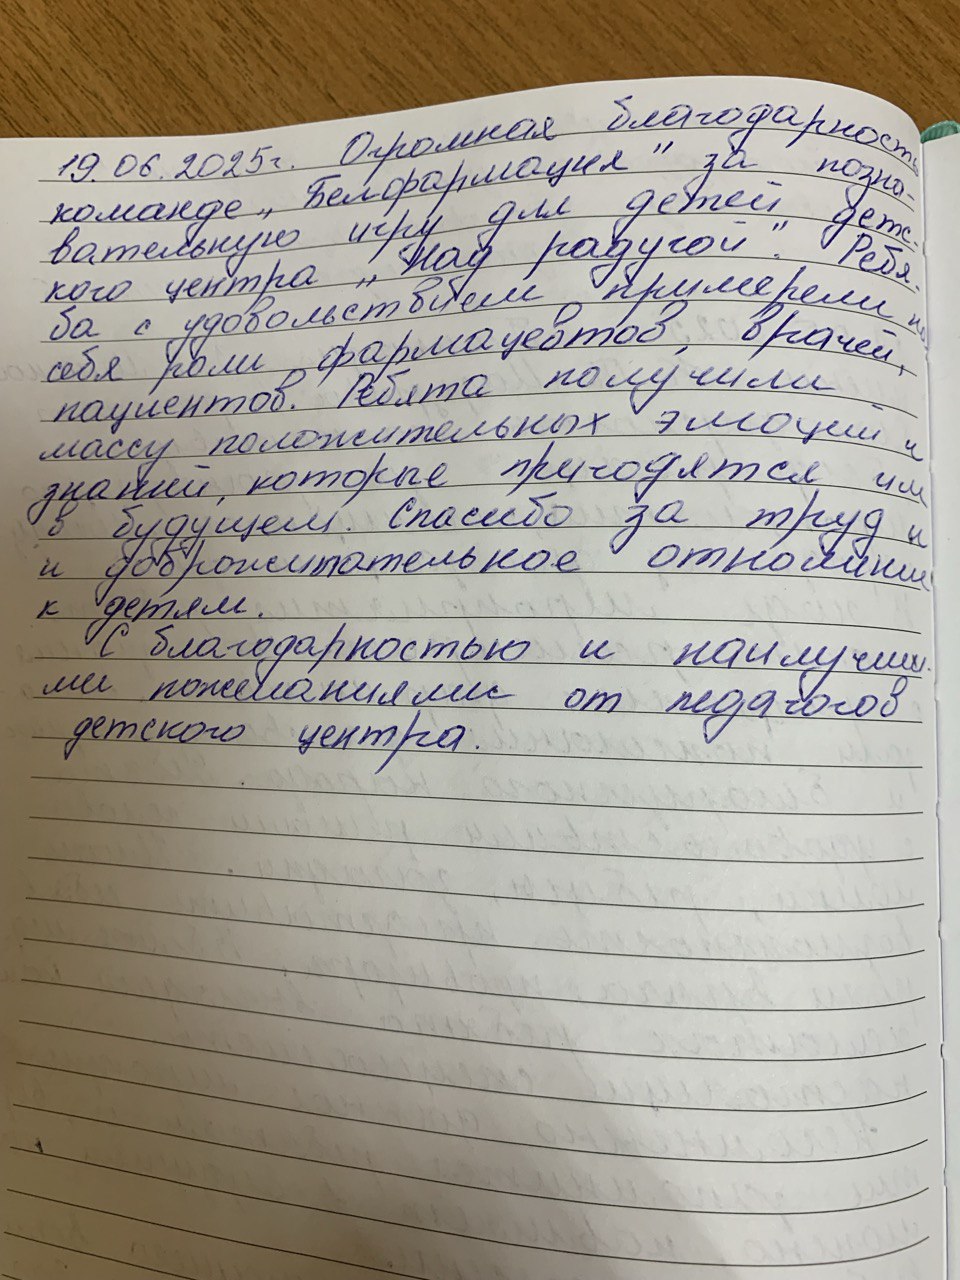 19.06.2025г. Огромная благодарность
команде „Белфармация" за позна-
вательную игру для детей детс-
кого центра „Над радугой". Ребя-
ба с удовольствием примерели на
себя роли фармацевтов, врачей,
пациентов. Ребята получили
массу положительных эмоций и
знаний, которые пригодятся им
в будущем. Спасибо за труд и
и доброжитательное отношение
к детям.
С благодарностью и наилучши-
ми пожеланиями от педагогов
детского центра.